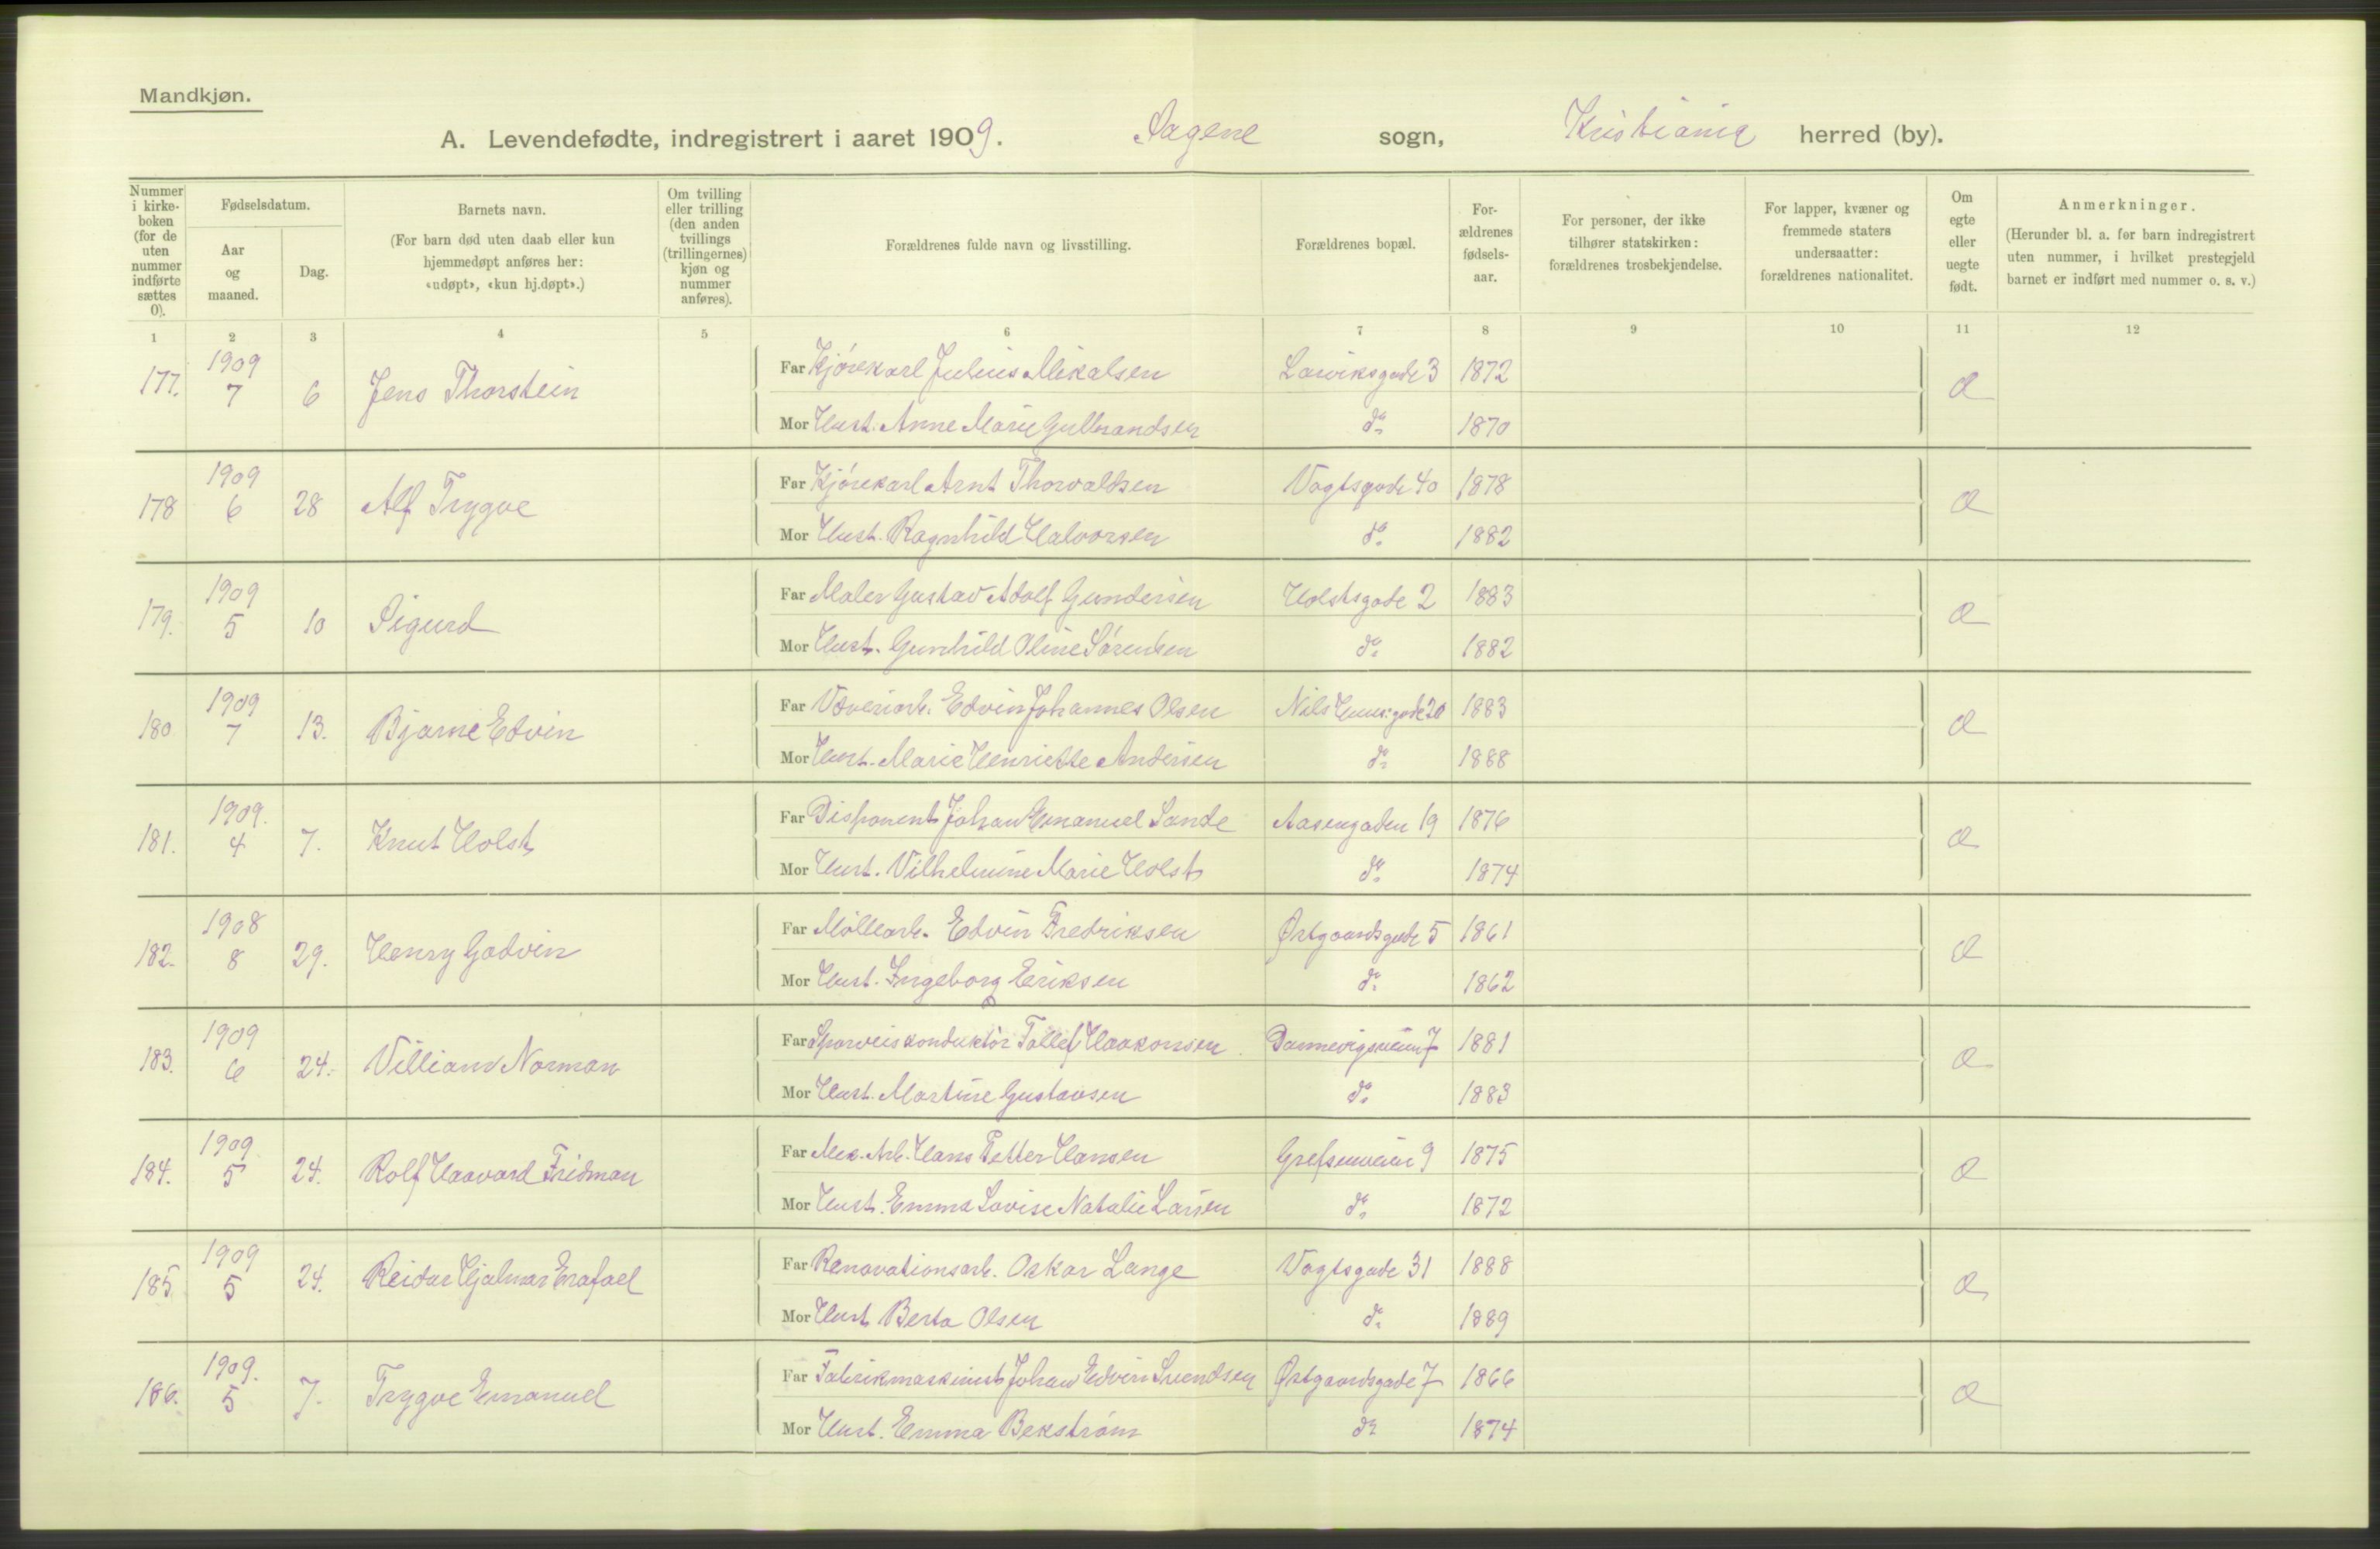 Mandkjøn.
A. Levendefødte, indregistrert i aaret 1909. Sagene sogn, Kristiania herred (by).
Nummer i kirkeboken (for de uten nummer indførte sættes 0).
Fødselsdatum.
Aar og maaned.
Dag.
Barnets navn.
(For barn død uten daab eller kun hjemmedøpt anføres her: «udøpt», «kun hj.døpt».)
Om tvilling eller trilling (den anden tvillings (trillingernes) kjøn og nummer anføres).
Forældrenes fulde navn og livsstilling.
Forældrenes bopæl.
Forældrenes fødselsaar.
For personer, der ikke tilhører statskirken: forældrenes trosbekjendelse.
For lapper, kvæner og fremmede staters undersaatter: forældrenes nationalitet.
Om egte eller uegte født.
Anmerkninger.
(Herunder bl. a. for barn indregistrert uten nummer, i hvilket prestegjeld barnet er indført med nummer o. s. v.)
1 2 3 4 5 6 7 8 9 10 11 12
177. 1909 7 6 Jens Thorstein Far Kjørekarl Julius Mikalsen Larviksgade 3 1872
Mor Hust. Anne Marie Gulbrandsen do 1870
178 1909 6 28 Alf Trygve Far Kjørekarl Arnt Thorvaldsen Vogtsgade 40 1878
Mor Hust. Ragnhild Halvorsen do 1882
179. 1909 5 10 Sigurd Far Maler Gustav Adolf Gundersen Holstsgade 2 1883
Mor Hust. Gunhild Oline Sørensen do 1882
180 1909 7 13. Bjarne Edvin Far Væveriarb. Edvin Johannes Olsen Nils Huus: gade 20 1883
Mor Hust. Marie Henriette Andersen do 1888
181. 1909. 4 7. Knut Holst Far Disponent Johan Emanuel Sande Aasengaden 19 1876
Mor Hust. Vilhelmine Marie Holst do 1874
182. 1908 8 29. Henry Godvin Far Møllearb. Edvin Fredriksen Østgaardsgade 5 1861
Mor Hust. Ingeborg Eriksen do 1862
183. 1909 6 24. Villiam Norman Far Sporveiskonduktör Tallef Haakonsen Dannevigsveien 7 1881
Mor Hust. Martine Gustavsen do 1883
184. 1909 5 24. Rolf Haavard Fridman Far Mek. Arb. Hans Petter Hansen Grefsenveien 9 1875
Mor Hust. Emma Lovise Natalie Larsen do 1872
185 1909 5 24. Reidar Hjalmar Erafael Far Renovationsarb. Oskar Lange Vogtsgade 31 1888
Mor Hust Berta Olsen do 1889
186. 1909. 5 7. Trygve Emanuel Far Fabrikmaskinist Johan Edvin Svendsen Østgaardsgade 7 1866
Mor Hust. Emma Bekström do 1874